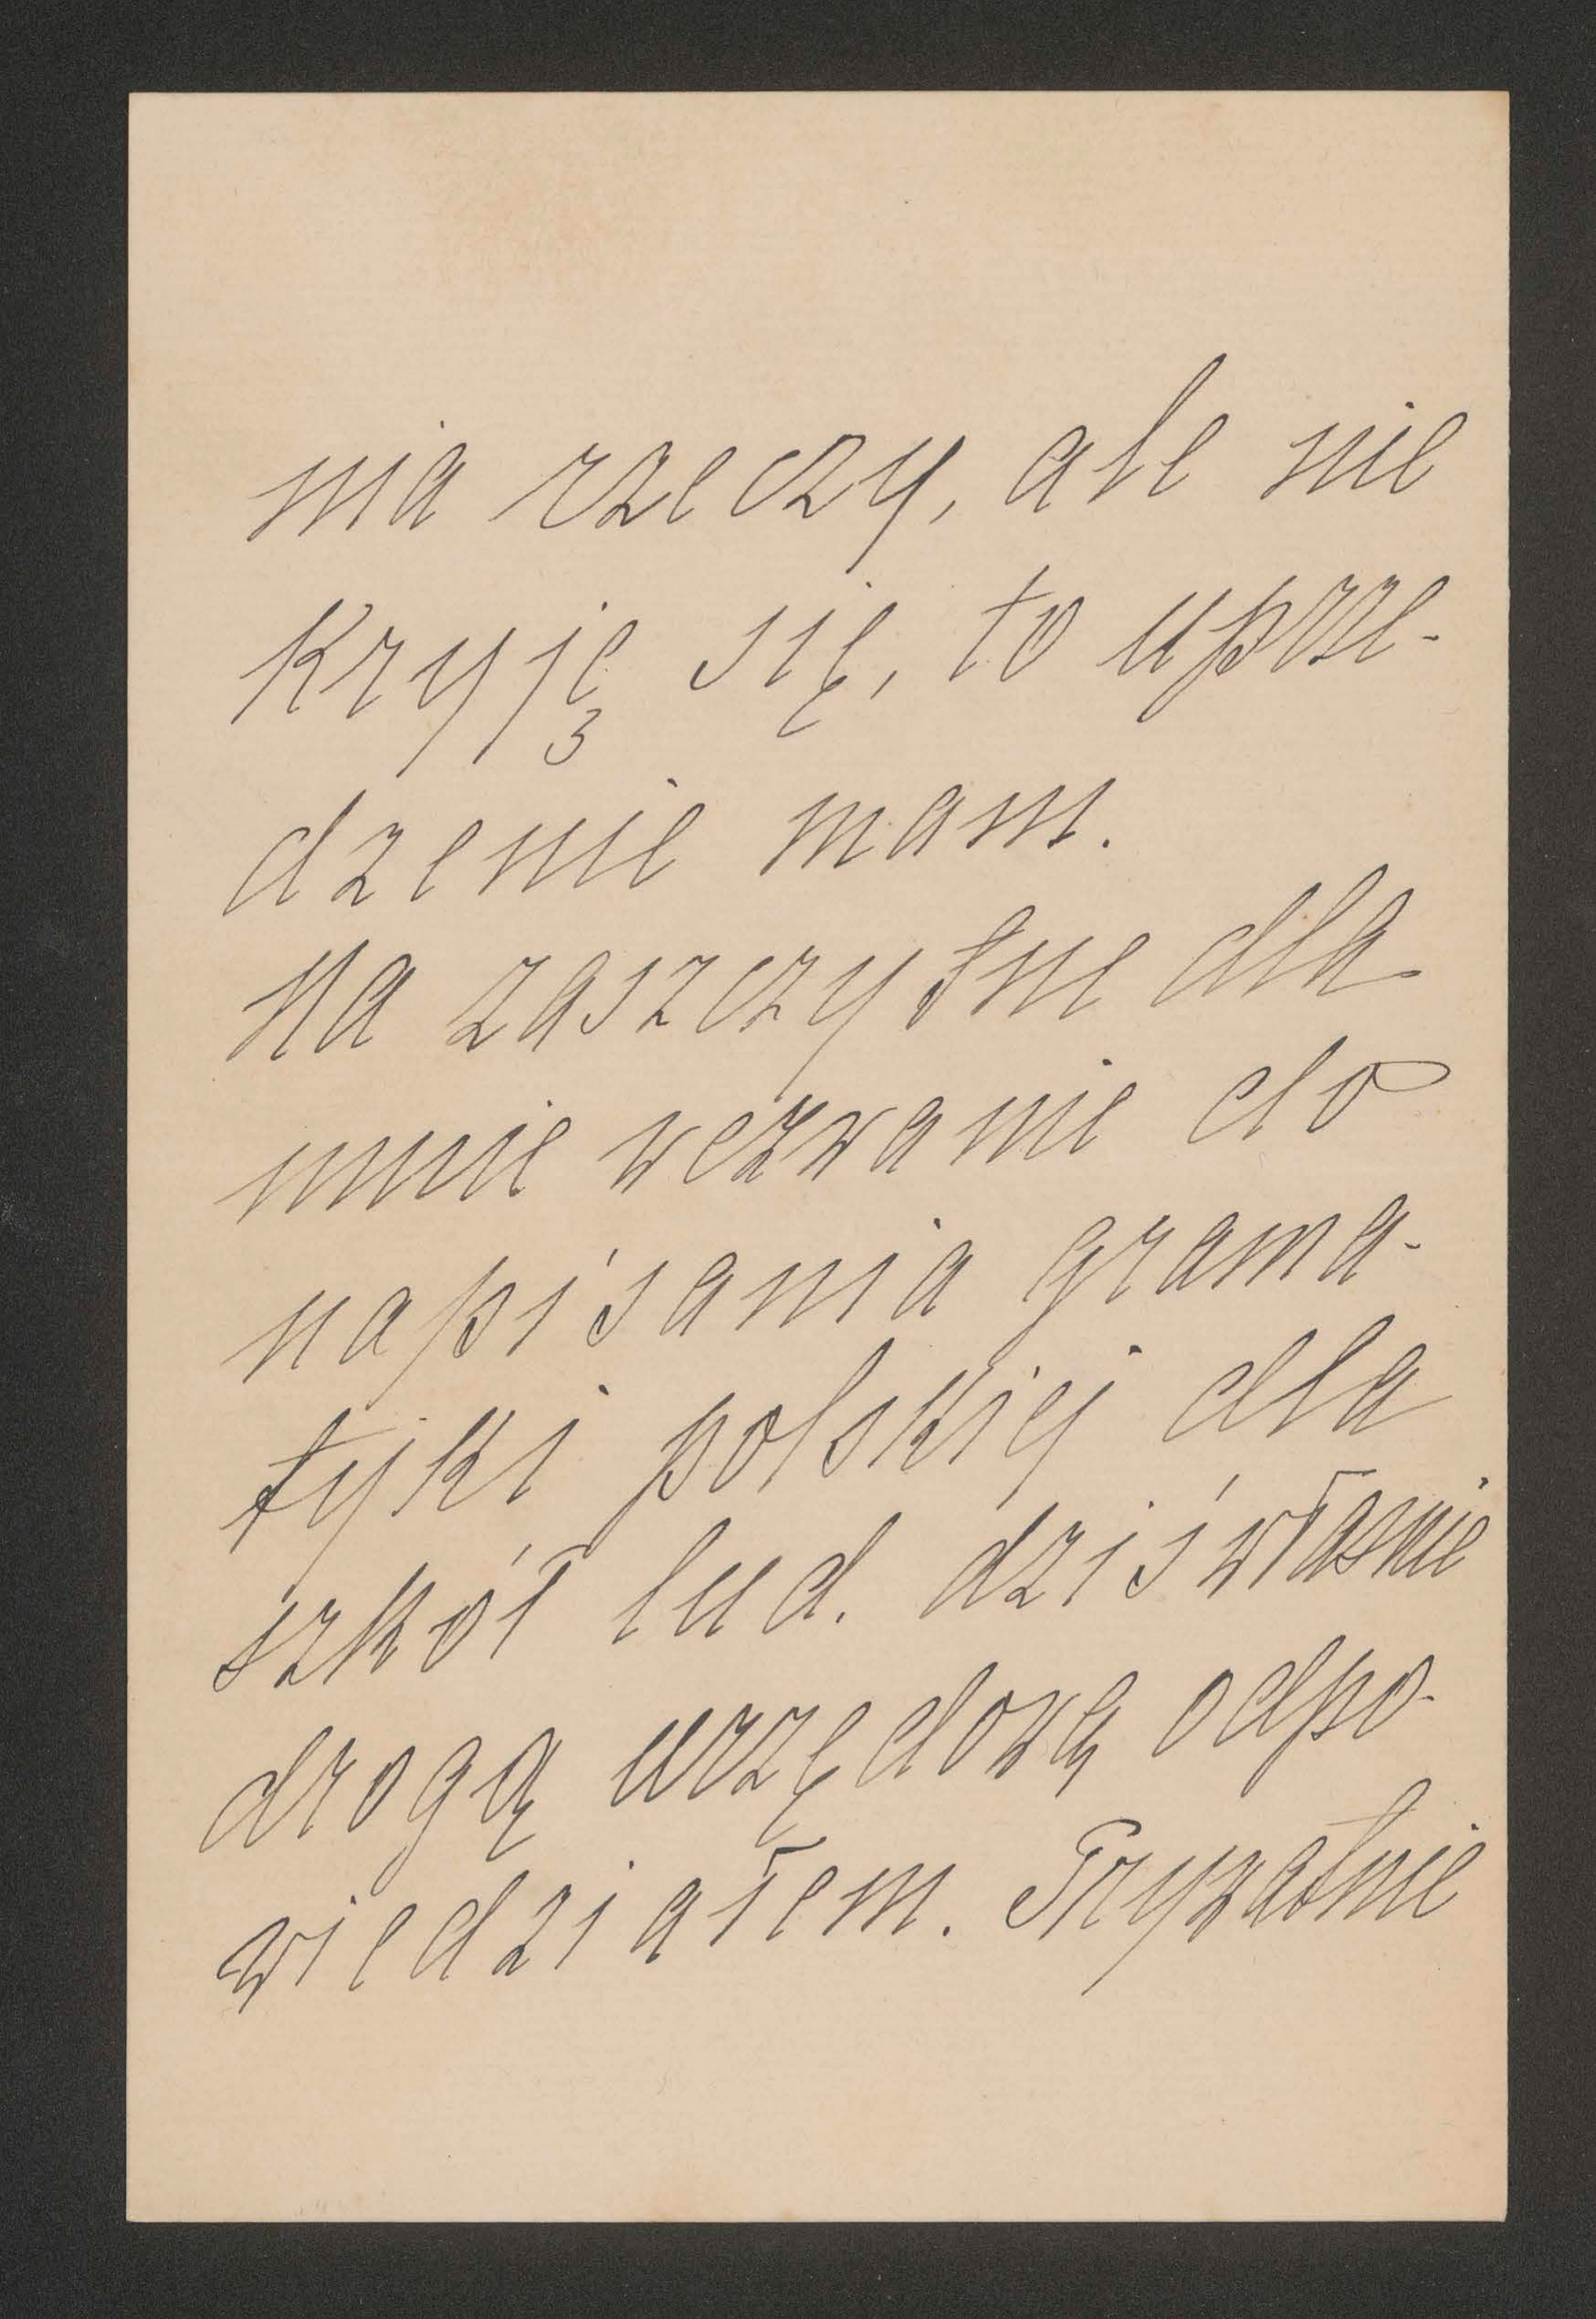 nia rzeczy, ale nie
kryję się, to uprze-
dzenie mam.
Na zaszczytne dla
mnie wezwanie do
napisania grama-
tyki polskiej dla
szkół lud. dziś właśnie
drogą urzędową odpo-
wiedziałem. Prywatnie